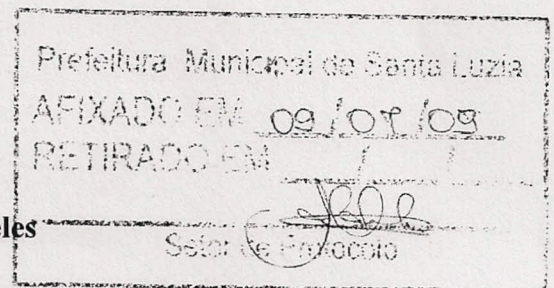 Prefeitura Municipal de Santa Luzia
AFIXADO EM 09/07/09
RETIRADO EM / /
eles
Setor de Protocolo